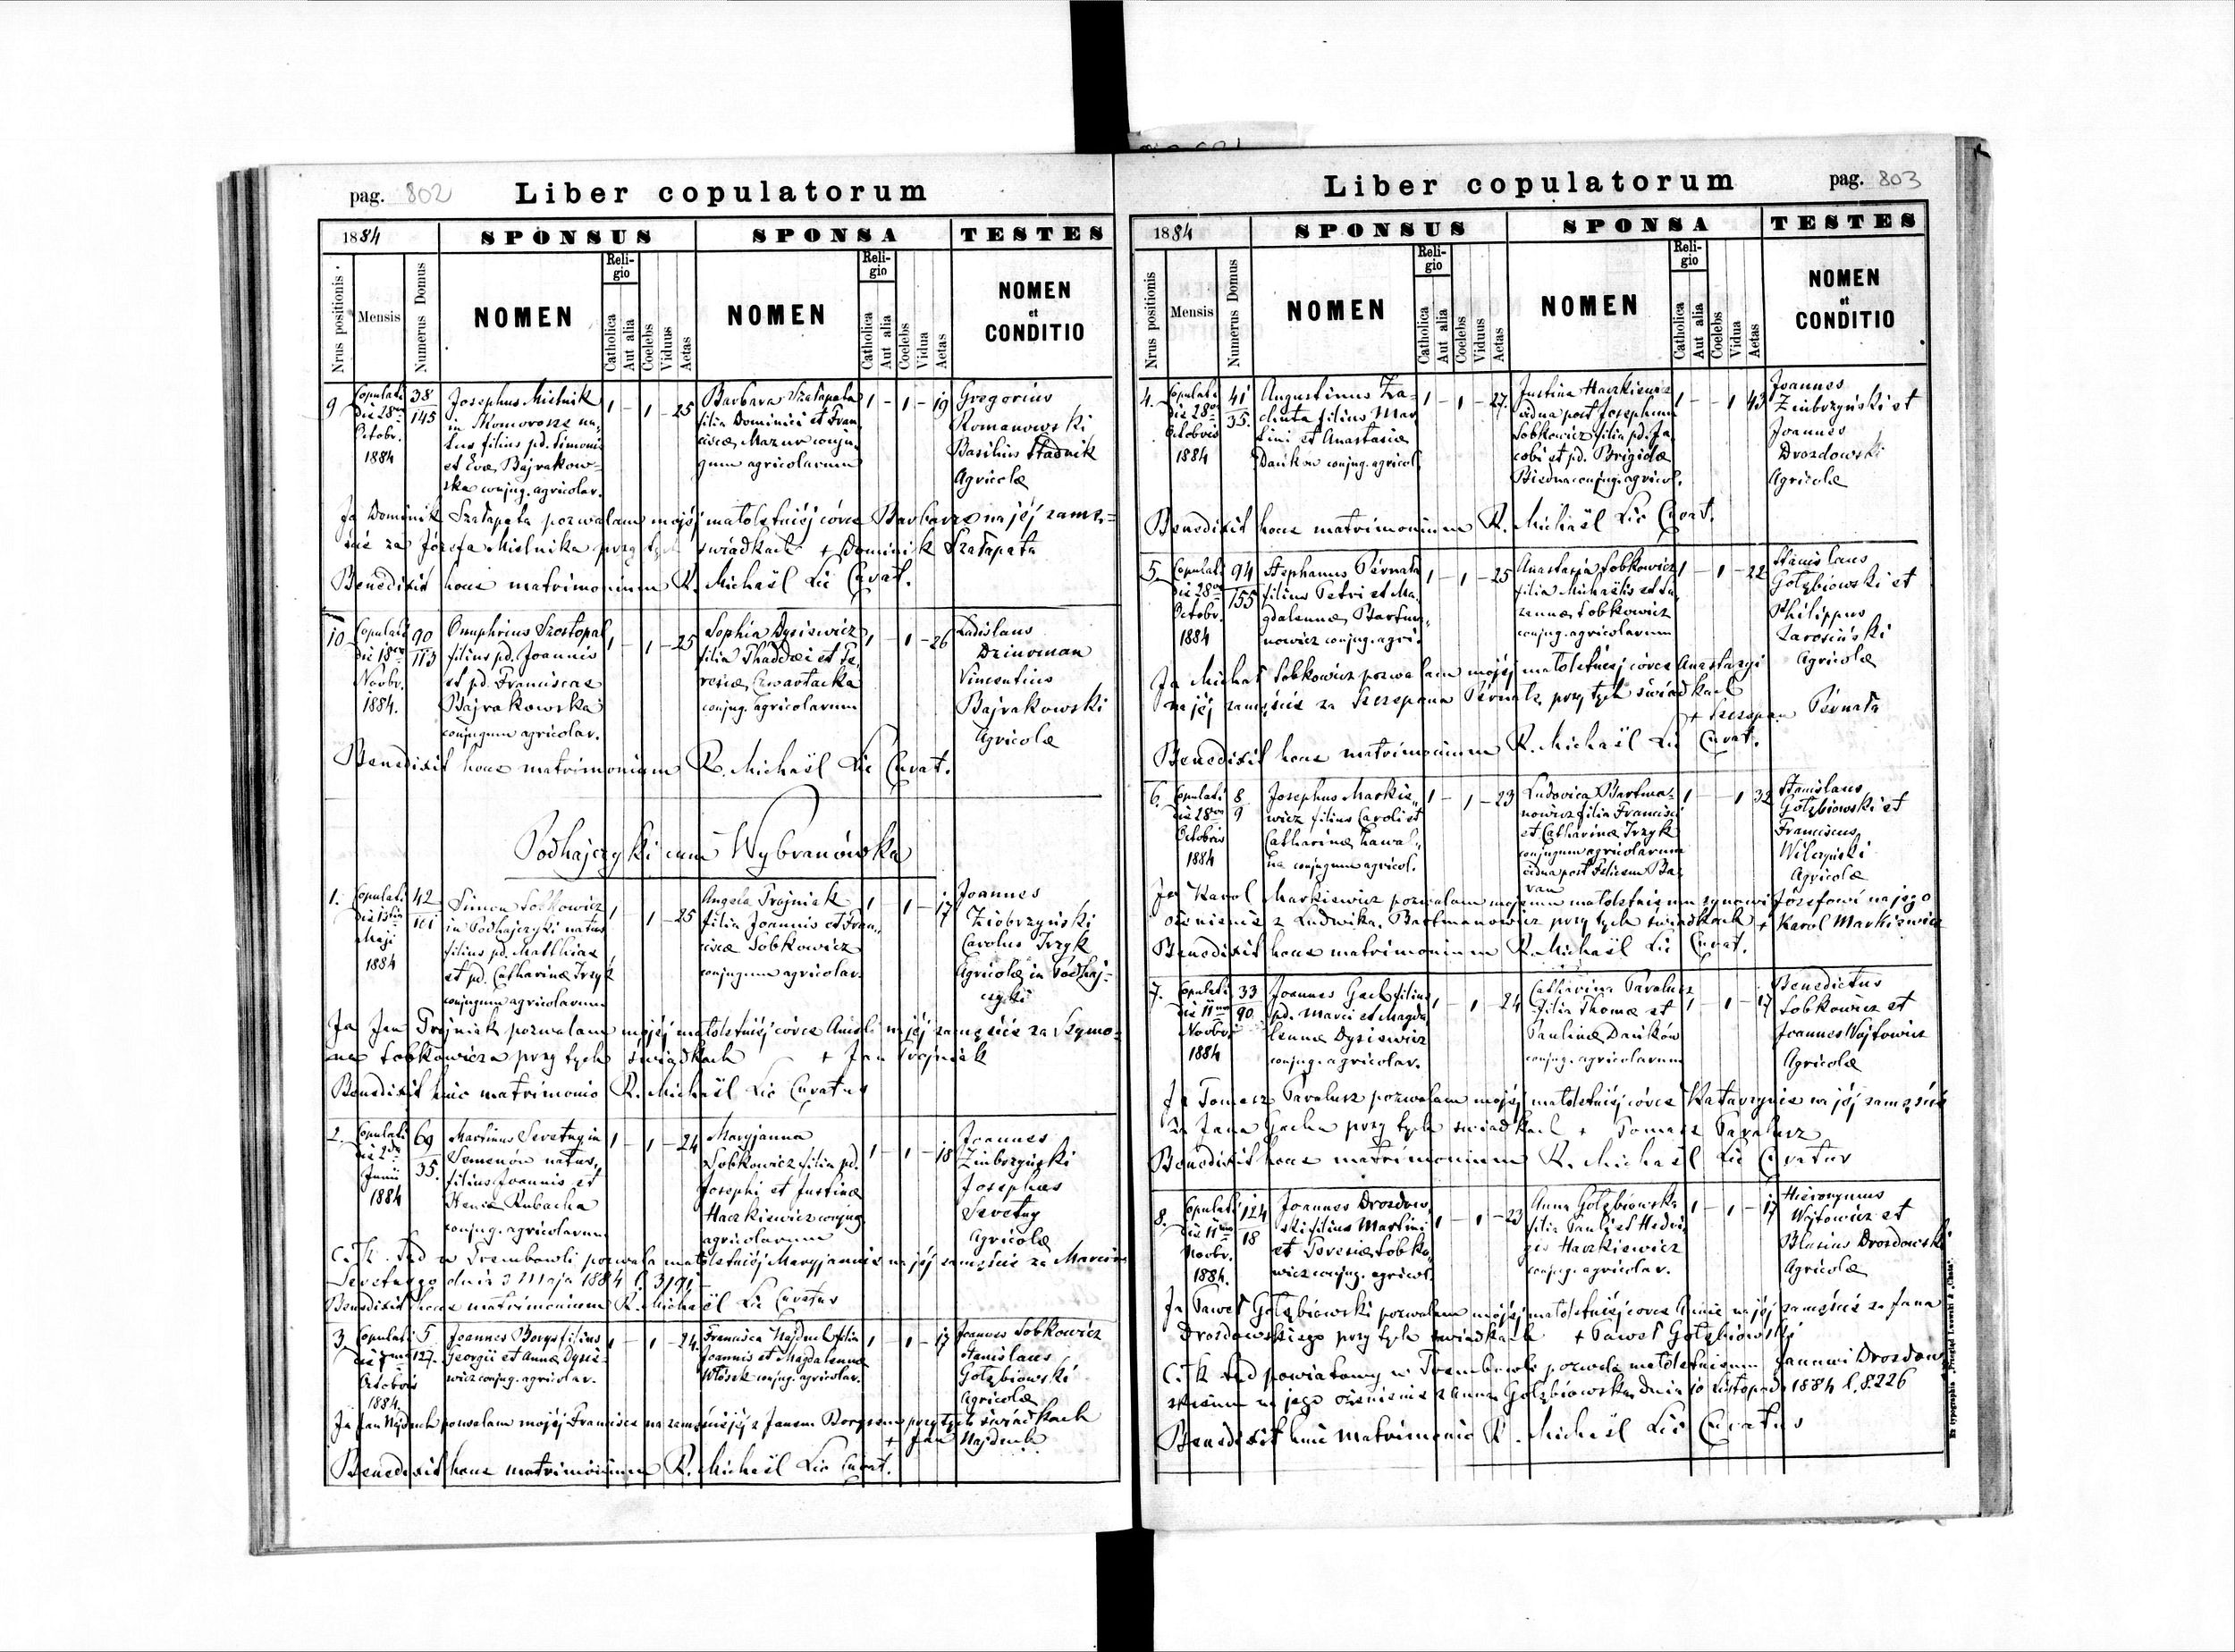 pag. 802 Liber copulatorum
1884 SPONSUS SPONSA TESTES
Nrus positionis Mensis Numerus Domus NOMEN Religio Catholica Aut alia Coelebs Viduus Aetas NOMEN Religio Catholica Aut alia Coelebs Vidua Aetas NOMEN et CONDITIO
9 Copulati die 28va Octobr. 1884
38 145
Josephus Mielnik
in Komorosze na-
tus filius pd. Simonis
et Evæ Bajrakow-
ska conjug. agricolar.
1 - 1 - 25
Barbara Szałapata
filia Dominici et Fran
ciscæ Mazur conju-
gum agricolarum
1 - 1 - 19
Gregorius
Romanowski
Basilius Stadnik
Agricolæ
Ja Dominik Szałapata pozwalam mojéj małoletniéj córce Barbarze na jéj zamę-
ście za Józefa Mielnika przy tych świadkach + Dominik Szałapata
Benedixit hocce matrimonium R. Michaël Lic Curat.
10 Copulati die 18va Novbr. 1884.
90 113
Onuphrius Szostopal
filius pd. Joannis
et pd. Franciscae
Bajrakowska
conjugum agricolar.
1 - 1 - 25
Sophia Dysiewicz
filia Thaddæi et Te,
resiæ Czwartacka
conjug. agricolarum
1 - 1 - 26
Ladislaus
Dziurman
Vincentius
Bajrakowski
Agricolæ
Benedixit hocce matrimonium R. Michaël Lic Curat.
Podhajczyki cum Wybranówka
1. Copulati die Maji 1884
42 101
Simon Sobkowicz
in Podhajczyki natus
filius pd. Matthiae
et pd. Catharinæ Irzyk
conjugum agricolarum
1 - 1 - 25
Angela Trojniak
filia Joannis et Fran,
ciscæ Sobkowicz
conjugum agricolar.
1 - 1 - 17
Joannes
Ziobrzyński
Carolus Irzyk
Agricolæ in Podhaj-
czyki
Ja Jan Trojniak pozwalam mojéj małoletniéj córce Anieli na jéj zamęście za Szymo-
na Sobkowicza przy tych świadkach + Jan Trojniak
Benedixit huic matrimonio R. Michaël Lic Curatus
2. Copulati die 2da Junii 1884
69 35.
Martinus Seretny in
Semenów natus,
filius Joannis et
Xeniæ Rubacha
conjug. agricolarum
1 - 1 - 24
Maryjanna
Sobkowicz filia pd.
Josephi et Justinæ
Haczkiewicz conjug
agricolarum
1 - 1 - 18
Joannes
Ziubrzyński
Josephus
Seretny
Agricolæ
C. K. Sąd w Trembowli pozwala małoletniéj Maryjannie na jéj zamęście za Marcina
Seretnego dnia 3 Maja 1884 l. 3191
Benedixit hocce matrimonium R. Michaël Lic Curatus
3 Copulati die 7ma Octobris 1884.
5 127.
Joannes Borys filius
Georgii et Annæ Dysie-
wicz conjug. agricolar.
1 - 1 - 24.
Francisca Najduch filia
Joannis et Magdalenæ
Włosek conjug. agricolar.
1 - 1 - 17
Joannes Sobkowicz
Stanislaus
Gołębiowski
Agricolæ
Ja Jan Najduch pozwalam mojéj Francisce na zamęście jéj z Janem Borysem przy tych świadkach
+ Jan Najduch
Benedixit hocce matrimonium R. Michaël Lic Curat.
Liber copulatorum pag. 803
1884 SPONSUS SPONSA TESTES
Nrus positionis Mensis Numerus Domus NOMEN Religio Catholica Aut alia Coelebs Viduus Aetas NOMEN Religio Catholica Aut alia Coelebs Vidua Aetas NOMEN et CONDITIO
4. Copulati die 28va Octobris 1884
41 35.
Augustinus Za-
chuta filius Mar
tini et Anastasiæ
Dańków conjug. agricol.
1 - 1 - 27.
Justina Haczkiewicz
vidua post Josephum
Sobkowicz filia pd. Ja
cobi et pd. Brigidæ
Biedna conjug. agricol.
1 - - 1 43
Joannes
Ziubrzyński et
Joannes
Drozdowski
Agricolæ
Benedixit hocce matrimonium R. Michaël Lic Curat.
5. Copulati die 28va Octobr. 1884
94 155
Stephanus Pérnata
filius Petri et Ma,
gdalenæ Bartma,
nowicz conjug. agri.
1 - 1 - 25
Anastasia Sobkowicz
filia Michaëlis et Su,
zannæ Sobkowicz
conjug. agricolarum
1 - 1 - 22
Stanislaus
Gołębiowski et
Philippus
Zarosiński
Agricolæ
Ja Michał Sobkowicz pozwalam mojéj małoletniéj córce Anastazyi
na jéj zamęście za Szczepana Pérnatę przy tych świadkach
+ Szczepan Pérnata
Benedixit hocce matrimonium R. Michaël Lic Curat.
6. Copulati die 28va Octobris 1884
8 9
Josephus Markie,,
wicz filius Caroli et
Catharinæ Hawal,
na conjugum agricol.
1 - 1 - 23
Ludovica Bartma-
nowicz filia Francisci
et Catharinæ Irzyk
conjugum agricolarum
vidua post Felicem Ba,
ran
1 - - 1 32
Stanislaus
Gołębiowski et
Franciscus
Wilczyński
Agricolæ
Ja Karol Markiewicz pozwalam mojemu małoletniemu synowi Józefowi na jego
ożenienie z Ludwiką Bartmanowicz przy tych świadkach + Karol Markiewicz
Benedixit hocce matrimonium R. Michaël Lic Curat.
7. Copulati die 11ma Novbr. 1884
33 90
Joannes Gach filius
pd. Marci et Magda
lenæ Dysiewicz
conjug. agricolar.
1 - 1 - 24
Catharina Taralusz
filia Thomæ et
Paulinæ Dańków
conjug. agricolarum
1 - 1 - 17
Benedictus
Sobkowicz et
Joannes Wojtowicz
Agricolæ
Ja Tomasz Taralusz pozwalam mojéj małoletniéj córce Katarzynie na jéj zamęście
za Jana Gacha przy tych świadkach + Tomasz Taralusz
Benedixit hocce matrimonium R. Michaël Lic Curatus
8. Copulati die 11ma Novbr. 1884.
124 18
Joannes Drozdow,
ski filius Martini
et Teresiæ Sobko,
wicz conjug. agricol.
1 - 1 - 23
Anna Gołębiowska
filia Pauli et Hedvi
gis Haczkiewicz
conjug. agricolar.
1 - 1 - 17
Hieronymus
Wojtowicz et
Blasius Drozdowski
Agricolæ
Ja Paweł Gołębiowski pozwalam mojéj małoletniéj córce Annie na jéj zamęście za Jana
Drozdowskiego przy tych świadkach + Paweł Gołębiowski
C. K. Sąd powiatowy w Trembowli pozwala małoletniemu Janowi Drozdow
skiemu na jego ożenienie z Anną Gołębiowską dnia 10 Listopada 1884 l. 8226
Benedixit huic matrimonio R. Michaël Lic Curatus